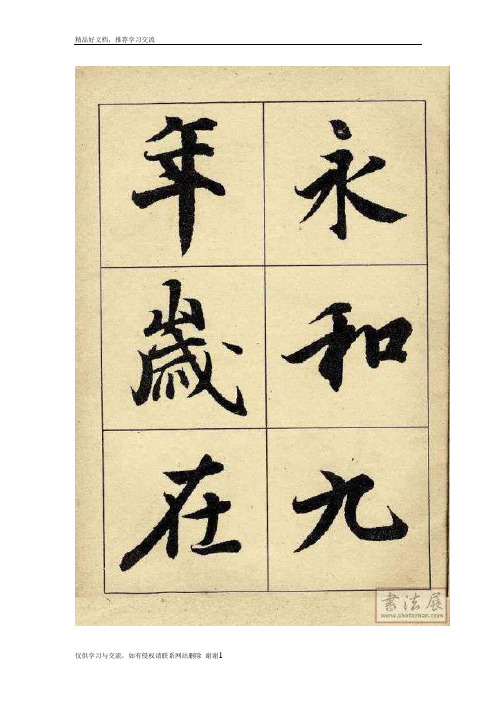 精品好文档，推荐学习交流
永和九
年歲在
書法展
www.shufazhan.com
仅供学习与交流，如有侵权请联系网站删除 谢谢1